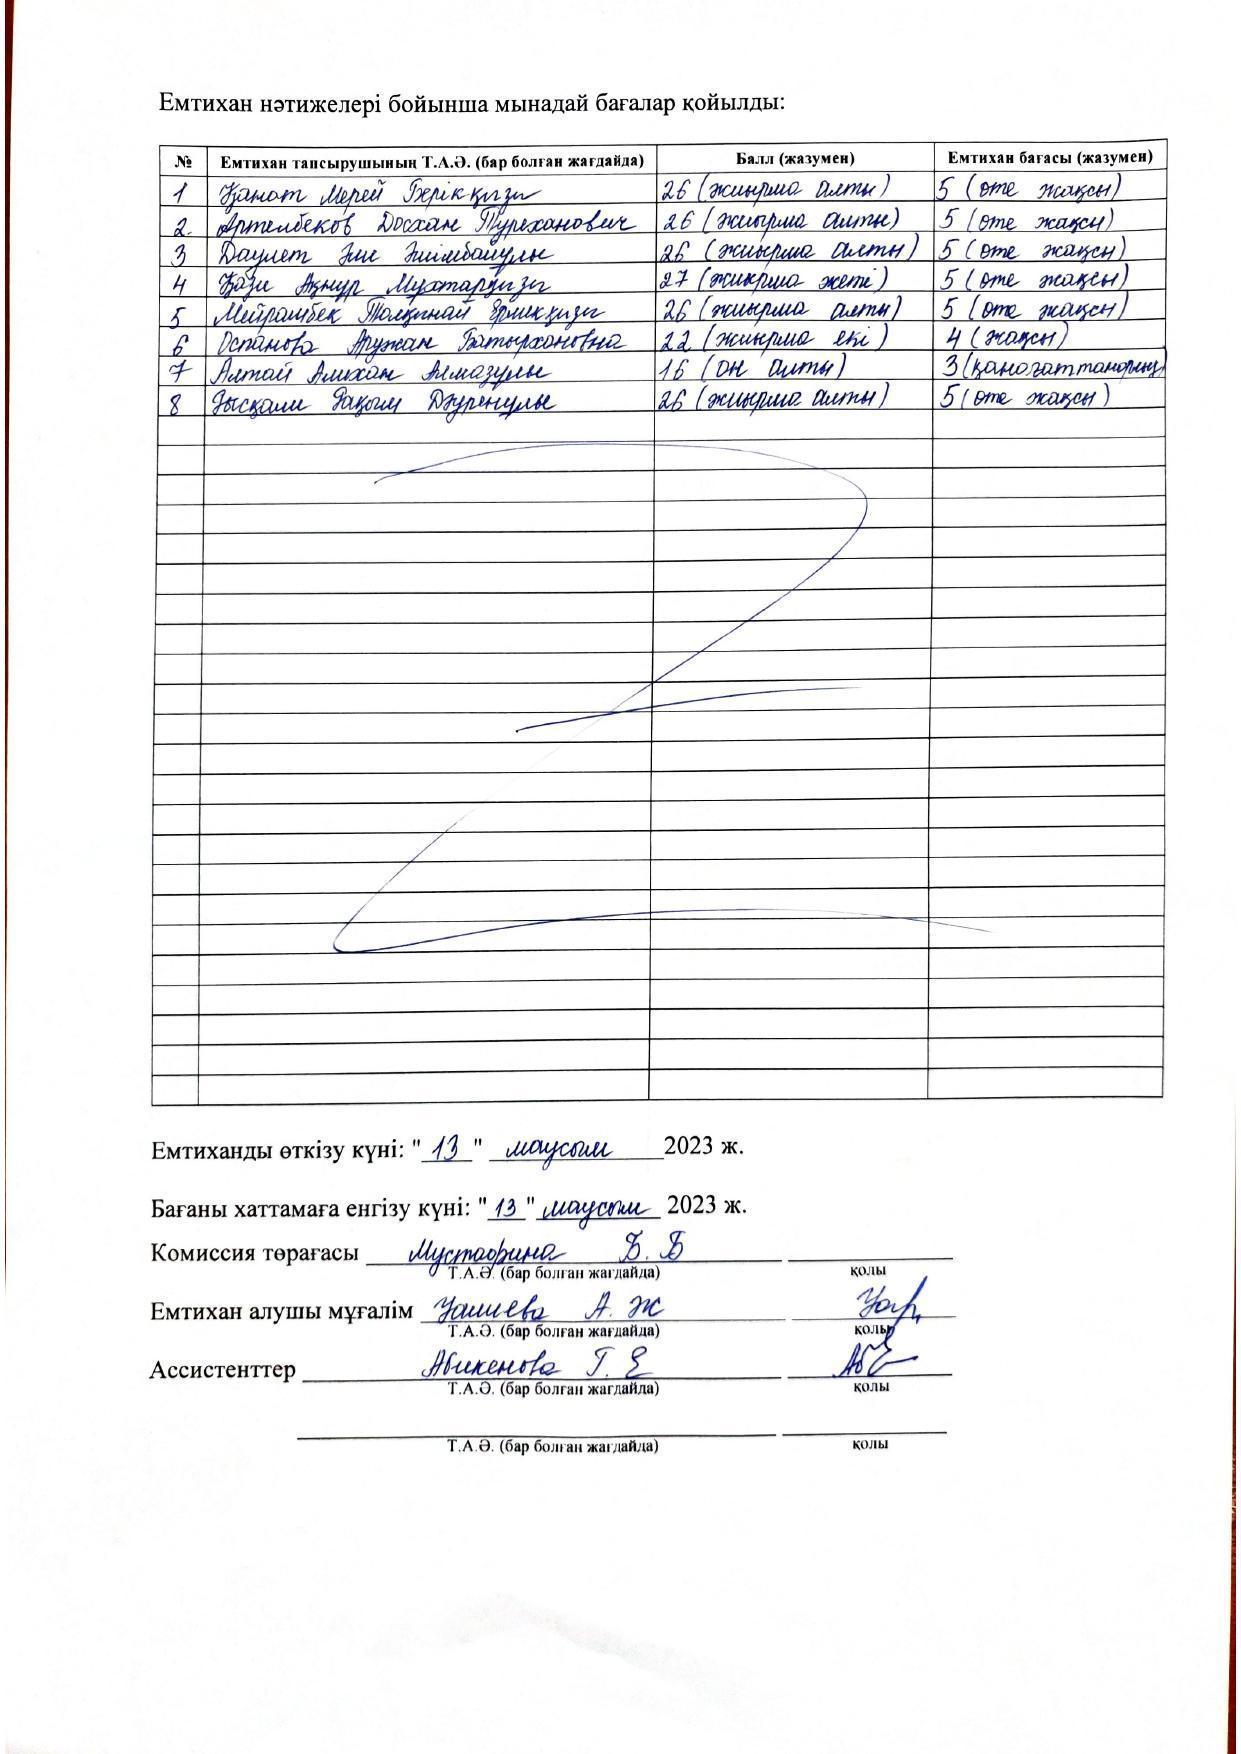 Емтихан нәтижелері бойынша мынадай бағалар қойылды:
№ Емтихан тапсырушының Т.А.Ә. (бар болған жағдайда) Балл (жазумен) Емтихан бағасы (жазумен)
1 Қанат Мерей Берікқызы 26 (жиырма алты) 5 (өте жақсы)
2. Артелбеков Досхан Турехaнович 26 (жиырма алты) 5 (өте жақсы)
3 Даулет 26 (жиырма алты) 5 (өте жақсы)
4 Қази Ақнұр Мұхтарқызы 27 (жиырма жеті) 5 (өте жақсы)
5 Мейрамбек Толқынай Ерікқызы 26 (жиырма алты) 5 (өте жақсы)
6 Оспанова Аружан Батырхановна 22 (жиырма екі) 4 (жақсы)
7 Алтай Алихан Алмазұлы 16 (он алты) 3 (қанағаттанарлық)
8 26 (жиырма алты) 5 (өте жақсы)
Емтиханды өткізу күні: "13" маусым 2023 ж.
Бағаны хаттамаға енгізу күні: "13" маусым 2023 ж.
Комиссия төрағасы Мустафина Б. Б
Т.А.Ә. (бар болған жағдайда) қолы
Емтихан алушы мұғалім Уалиева А. Ж
Т.А.Ә. (бар болған жағдайда) қолы
Ассистенттер Абикенова Г. Е
Т.А.Ә. (бар болған жағдайда) қолы
Т.А.Ә. (бар болған жағдайда) қолы